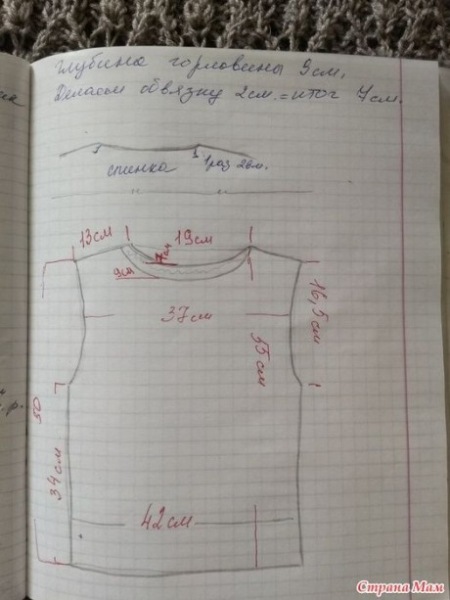 глубина горловины 9см,
Делаем обвязку 2см.=итог 7см.
спинка 1раз 2см.
13см 19см
7см
9см
37см
16,5см
55см
50
34см
42см
Страна Мам